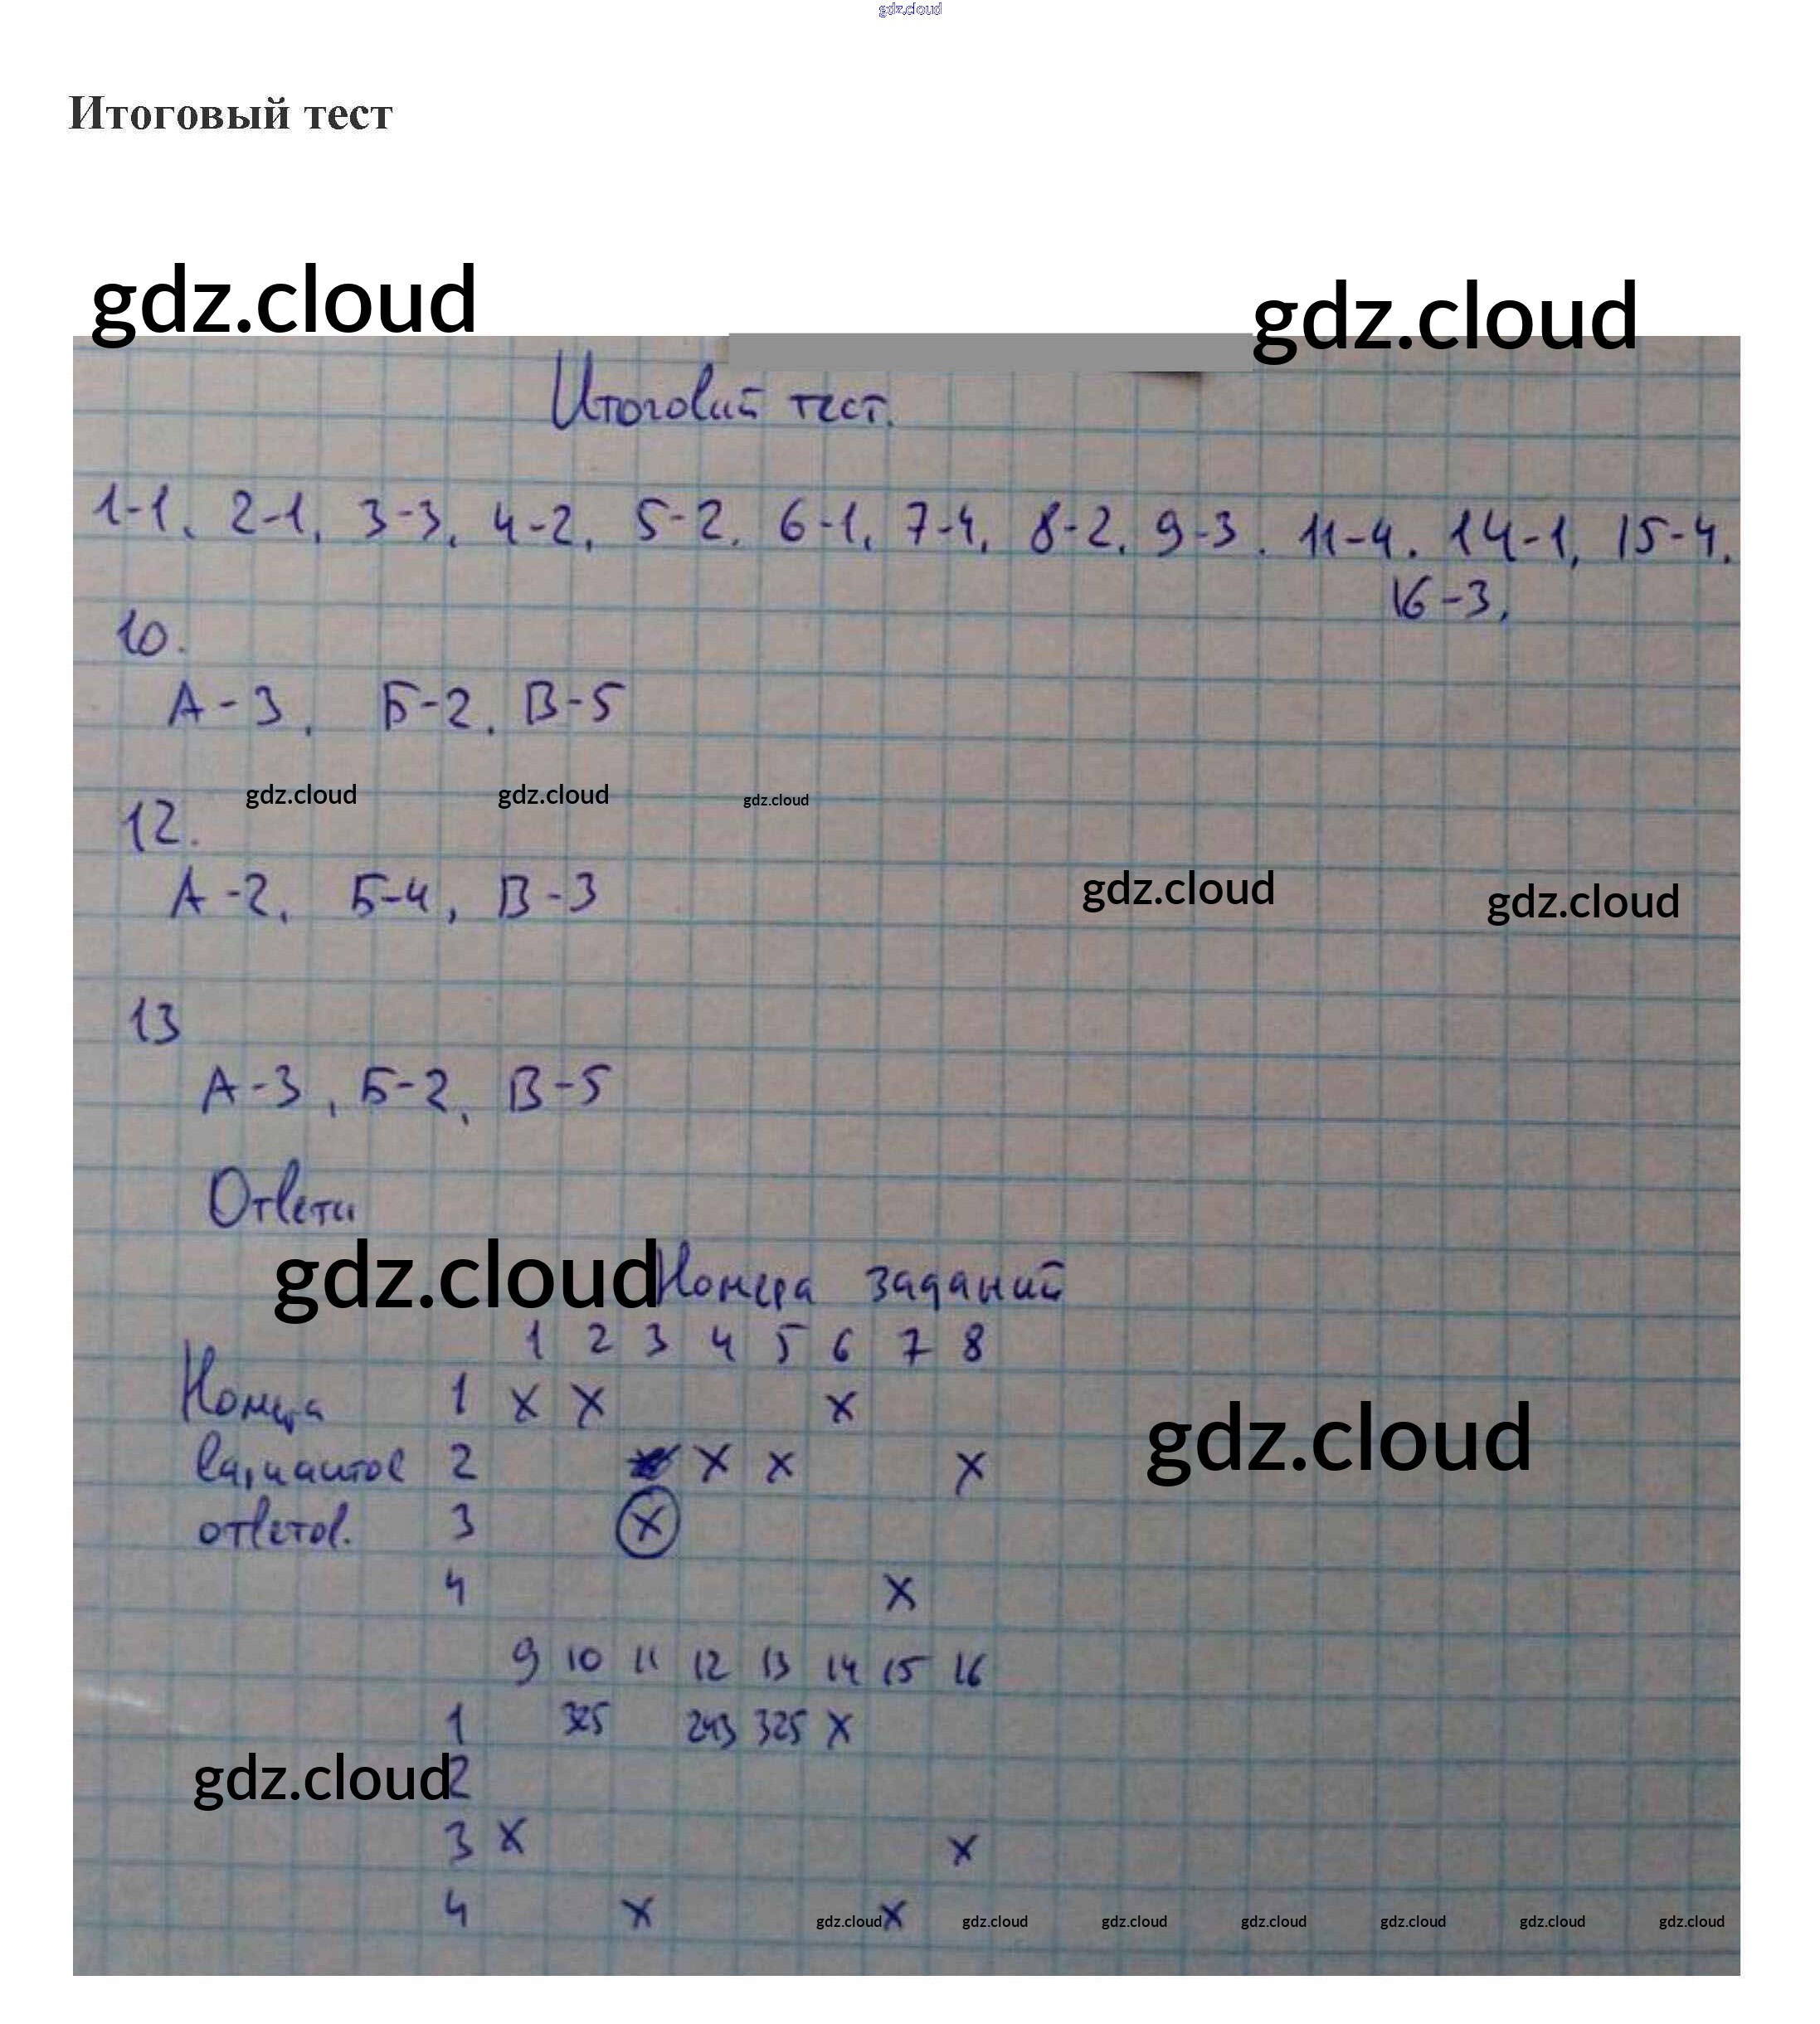 gdz.cloud
Итоговый тест
gdz.cloud gdz.cloud
Итоговый тест.
1-1, 2-1, 3-3, 4-2, 5-2, 6-1, 7-4, 8-2, 9-3. 11-4. 14-1, 15-4.
16-3,
10.
А-3, Б-2, В-5
gdz.cloud gdz.cloud gdz.cloud
12.
А-2, Б-4, В-3
gdz.cloud gdz.cloud
13
А-3, Б-2, В-5
Ответы
gdz.cloud Номера заданий
1 2 3 4 5 6 7 8
Номера 1 х х х
вариантов 2 х х х
ответов. 3 х
gdz.cloud
4 х
9 10 11 12 13 14 15 16
1 325 243 325 х
gdz.cloud 2
3 х х
4 х х
gdz.cloud gdz.cloud gdz.cloud gdz.cloud gdz.cloud gdz.cloud gdz.cloud